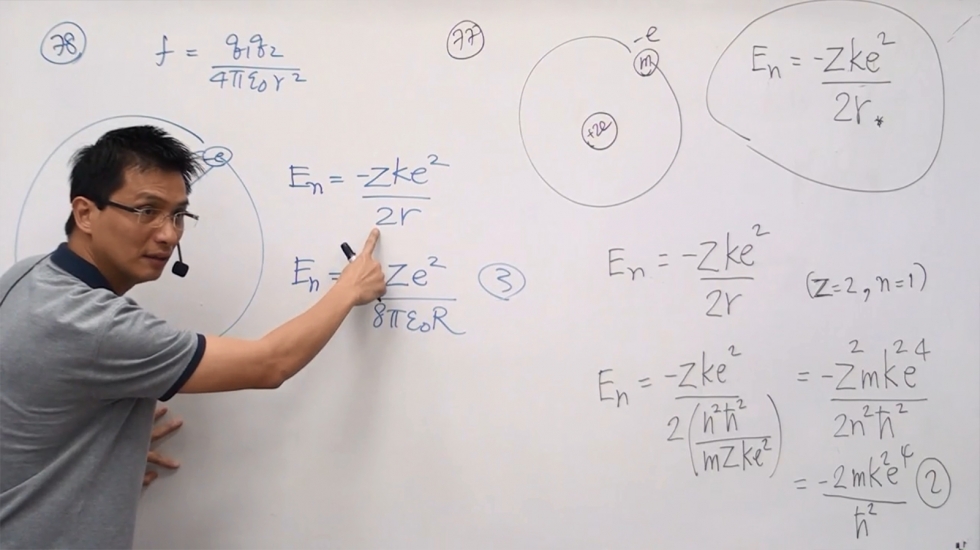 78
f = q₁q₂ / 4πε₀r²
-e
Eₙ = -Zke² / 2r
Eₙ = Ze² / 8πε₀R
3
77
-e
m
+2e
Eₙ = -Zke² / 2r
Eₙ = -Zke² / 2r (Z=2, n=1)
Eₙ = -Zke² / 2(n²ħ² / mZke²) = -Z²mk²e⁴ / 2n²ħ²
= -2mk²e⁴ / ħ² 2